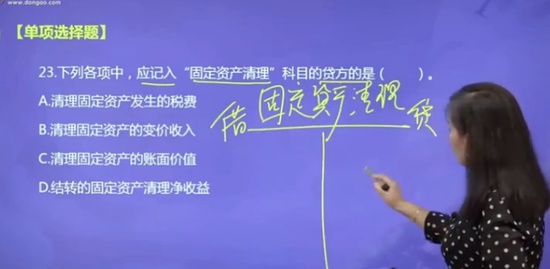 www.dongao.com
【单项选择题】
23.下列各项中，应记入“固定资产清理”科目的贷方的是（　　）。
A.清理固定资产发生的税费
B.清理固定资产的变价收入
C.清理固定资产的账面价值
D.结转的固定资产清理净收益
固定资产清理
借 贷